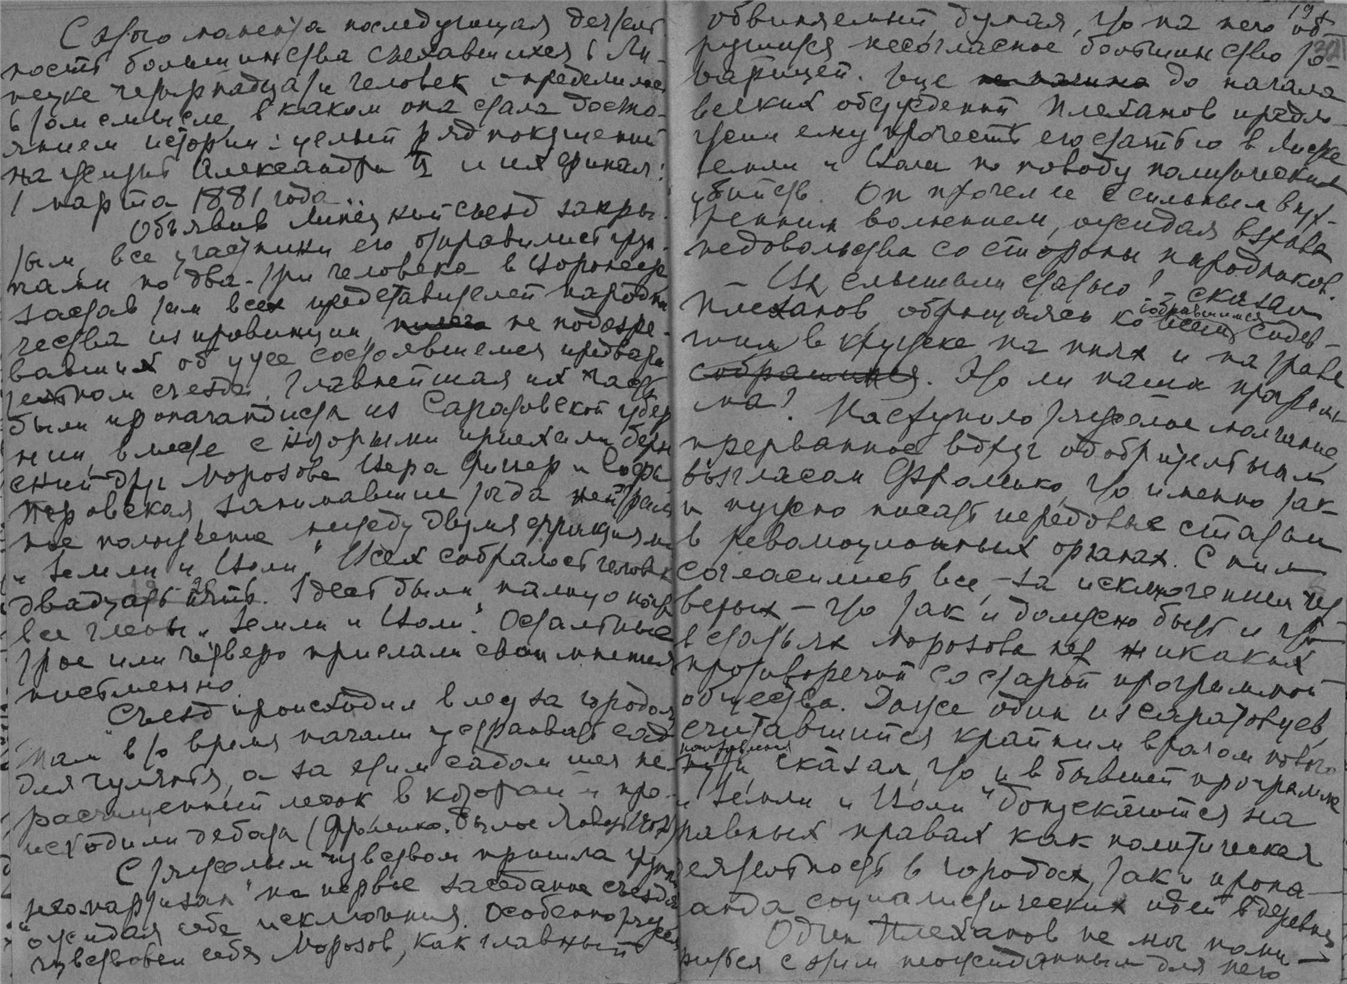 С этого момента последующая деятель-
ность большинства съехавшихся в Ли-
пецке четырнадцати человек определилась
в том смысле в каком она стала досто-
янием истории: целый ряд покушений
на жизнь Александра II и их финал:
1 марта 1881 года.
Объявив Липецкий съезд закры-
тым, все участники его отправились груп-
пами по два-три человека в Воронеж
застав там всех представителей народни-
чества из провинции не подозре-
вавших об уже состоявшемся предвари-
тельном съезде. Главнейшая их часть
были пропагандисты из Саратовской губер-
нии, вместе с которыми приехали
друг Морозова Вера Фигнер и Софья
Перовская, занимавшие тогда нейтраль-
ное положение между двумя фракциями
„Земли и Воли“. Всех собралось человек
двадцать пять. Здесь были налицо почти
все члены „Земли и Воли“. Остальные
трое или четверо прислали свои мнения
письменно.
Съезд происходил в лесу за городом.
Там в то время начали устраивать сад
для гулянья, а за этим садом шел не-
расчищенный лесок в котором и про-
исходили дебаты (Фроленко. Былое
С тяжелым чувством пришла группа
„ на первое заседание съезда
ожидая себе исключения. Особенно
чувствовал себя Морозов, как главный
обвиняемый, думая, что на него об-
рушится несогласное большинство то-
варищей. Еще до начала
всяких обсуждений Плеханов предло-
жил ему прочесть его статью в Листке
Земли и Воли по поводу политических
убийств. Он прочел ее с сильным внут-
ренним волнением, ожидая взрыва
недовольства со стороны народников.
— Вы слышали статью? сказал
Плеханов обращаясь ко всем собравшимся сидев-
шим в кружке на пнях и на траве
собравшимся. Это ли наша програм-
ма? Наступило тяжелое молчание,
прерванное вдруг одобрительным
возгласом Фроленко, что именно так
и нужно писать передовые статьи
в революционных органах. С ним
согласились все, — за исключением
— что так и должно быть и что
в статьях Морозова нет никаких
противоречий со старой программой
общества. Даже один из саратовцев,
считавшийся крайним врагом нового
направления сказал, что и в бывшей программе
„Земли и Воли“ допускаются на
равных правах как политическая
деятельность в городах, так и пропа-
ганда социалистических идей в деревнях
Один Плеханов не мог прими-
риться с этим неожиданным для него